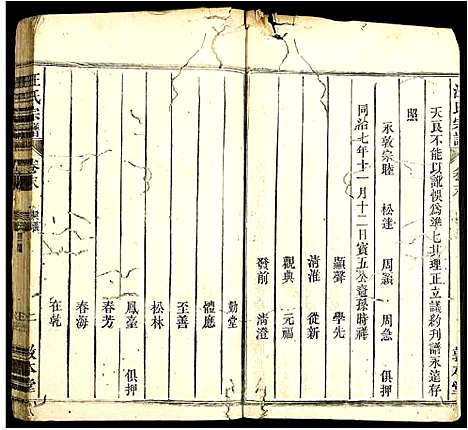 汪氏宗譜
天良不能以訛悞爲準七其理正立議約刊譜永遠存
照
永敦宗睦 松達 周頴 周急 俱押
同治七年十二月十二日賓五公壼孫時祥
顯聲 學先
清淮 從新
觀典 元福
發前 清澄
勤堂
體應
至善
松林
鳳臺 俱押
春芳
春海
在乾
敦本堂
汪氏宗譜
卷末
敦本堂